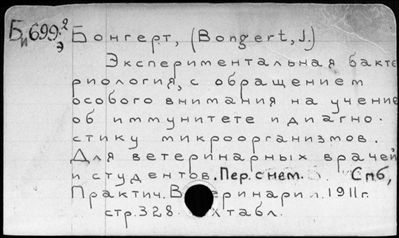 Би 699.2
э
Бонгерт, (Bongert, J.)
Экспериментальная бакте
риология, с обращением
особого внимания на учение
об иммунитете и диагно-
стику микроорганизмов.
Для ветеринарных врачей
и студентов. Пер. с нем. Спб,
Практич. 1911г.
стр. 328 табл.